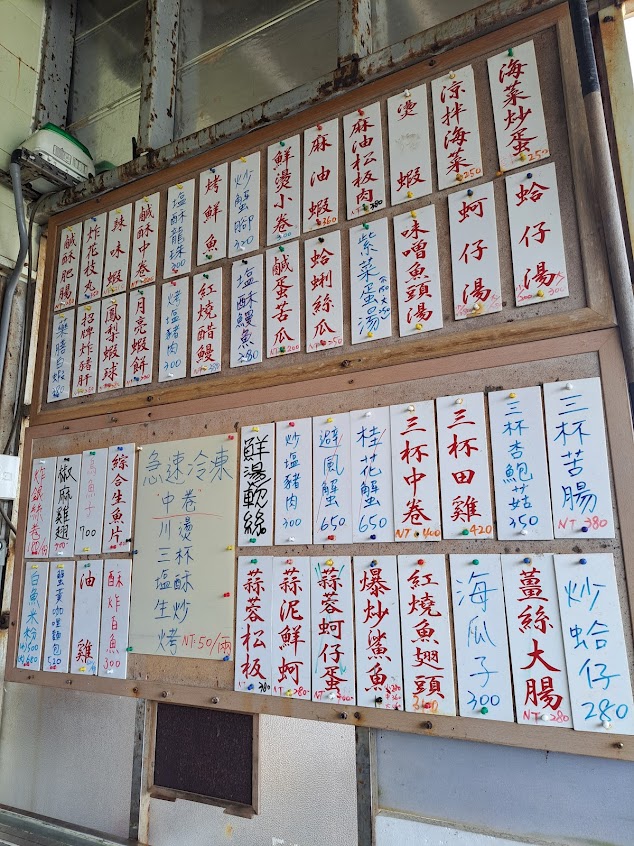 海菜炒蛋 250
涼拌海菜 250
燙蝦
麻油松板肉 380
麻油蝦 360
鮮燙小卷
炒蟹腳 320
烤鮮魚
塩酥龍珠 300
鹹酥中卷
辣味蝦
炸花枝丸
鹹酥肥腸
蛤仔湯
蚵仔湯
味噌魚頭湯
紫菜蛋湯
蛤蜊絲瓜 NT 250
鹹蛋苦瓜 NT 200
塩酥鰻魚 280
紅燒醋鰻
烤塩豬肉
月亮蝦餅
鳳梨蝦球
招牌炸豬肝
三杯苦腸 NT 380
三杯杏鮑菇 350
三杯田雞 420
三杯中卷 NT 400
桂花蟹 650
避風蟹 650
炒塩豬肉 300
鮮湯軟絲
急速冷凍
中卷
川燙
三杯
塩酥
生炒
烤 NT:50/兩
綜合生魚片
烏魚子 700
椒麻雞翅
炒蛤仔 280
薑絲大腸 NT 280
海瓜子 300
紅燒魚翅頭 360
爆炒鯊魚
蒜蓉蚵仔蛋
蒜泥鮮蚵 NT 280
蒜蓉松板
酥炸白魚 300
油雞
蟹黃咖哩麵包 520
白魚米粉